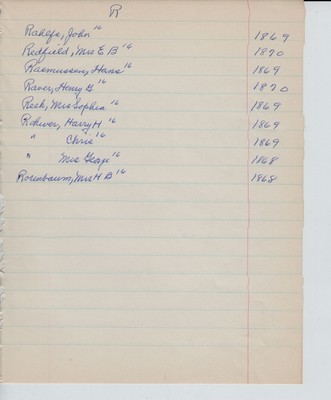 R
Rahlfs, John 16 1869
Redfield, Mrs E B 16 1870
Rasmussen, Hans 16 1869
Raver, Henry G 16 1870
Reek, Mrs Sophia 16 1869
Rohwer, Harry H 16 1869
" Chris 16 1869
" Mrs Geo 16 1868
Rosenbaum, Mrs H B 16 1868